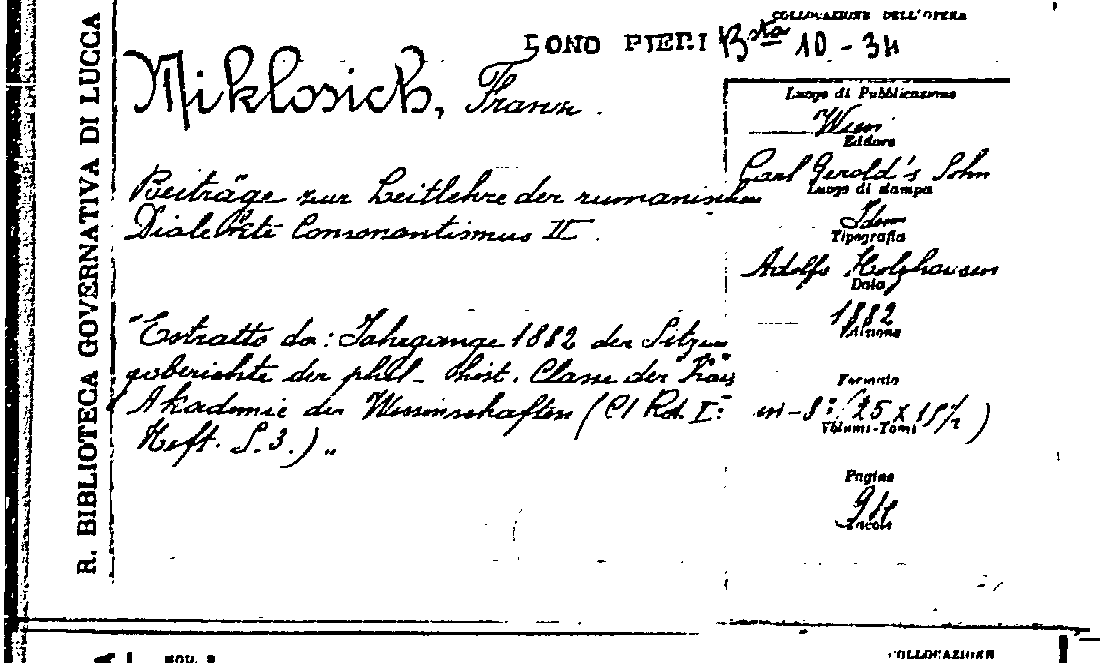 R. BIBLIOTECA GOVERNATIVA DI LUCCA
COLLOCAZIONE DELL'OPERA
DONO PIERI Bsta 10 - 34
Miklosich, Franz.
Beiträge zur Leitlehre der rumanischen
Dialekte Consonantismus II.
"Estratto da: Jahrgange 1882 der Sitzun
gsberichte der phil- hist. Classe der Kais
Akademie der Wissenschaften (CI Bd. I:
Heft. S. 3.) „
Luogo di Pubblicazione
Wien
Editore
Carl Gerold's Sohn
Luogo di stampa
Idem
Tipografia
Adolfs Holzhausen
Data
1882
Edizione
Formato
in-8: (25 x 15½)
Volumi-Tomi
Pagine
94
MOD. 2
COLLOCAZIONE